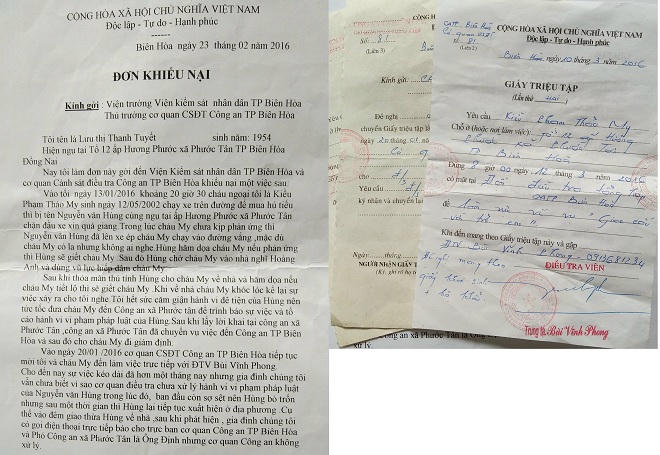 CỘNG HÒA XÃ HỘI CHỦ NGHĨA VIỆT NAM
Độc lập - Tự do - Hạnh phúc
Biên Hòa ngày 23 tháng 02 năm 2016
ĐƠN KHIẾU NẠI
Kính gửi : Viện trưởng Viện kiểm sát nhân dân TP Biên Hòa
Thủ trưởng cơ quan CSĐT Công an TP Biên Hòa
Tôi tên là Lưu thị Thanh Tuyết sinh năm: 1954
Hiện ngụ tại Tổ 12 ấp Hương Phước xã Phước Tân TP Biên Hòa
Đồng Nai
Nay tôi làm đơn này gởi đến Viện Kiểm sát nhân dân TP Biên Hòa và
cơ quan Cảnh sát điều tra Công an TP Biên Hòa khiếu nại một việc sau.
Vào tối ngày 13/01/2016 khoảng 20 giờ 30 cháu ngoại tôi là Kiều
Phạm Thảo My sinh ngày 12/05/2002 chạy xe trên đường để mua hủ tiếu
thì bị tên Nguyễn văn Hùng cùng ngụ tại ấp Hương Phước xã Phước Tân
chặn đầu xe xin quá giang. Trong lúc cháu My chưa kịp phản ứng thì
Nguyễn văn Hùng đã lên xe ép cháu My chạy vào đường vắng ,mặc dù
cháu My có la nhưng không ai nghe. Hùng hăm dọa cháu My nếu phản ứng
thì Hùng sẽ giết cháu My. Sau đó Hùng chở cháu My vào nhà nghỉ Hoàng
Anh và dùng vũ lực hiếp dâm cháu My
Sau khi thỏa mãn thú tính Hùng cho cháu My về nhà và hăm dọa nếu
cháu My tiết lộ thì sẽ giết cháu My. Khi về nhà cháu My khóc lóc kể lại sự
việc xảy ra cho tôi nghe. Tôi hết sức căm giận hành vi đê tiện của Hùng nên
tức tốc đưa cháu My đến Công an xã Phước tân để trình báo sự việc và tố
cáo hành vi vi phạm pháp luật của Hùng. Sau khi lấy lời khai tại công an xã
Phước Tân ,công an xã Phước Tân đã chuyển vụ việc đến Công an TP Biên
Hòa và sau đó cho cháu My đi giám định.
Vào ngày 20/01 /2016 cơ quan CSĐT Công an TP Biên Hòa tiếp tục
mời tôi và cháu My đến làm việc trực tiếp với ĐTV Bùi Vĩnh Phong.
Cho đến nay sự việc kéo dài đã hơn một tháng nay nhưng gia đình chúng tôi
vẫn chưa biết vì sao cơ quan điều tra chưa xử lý hành vi vi phạm pháp luật
của Nguyễn văn Hùng trong lúc đó, ban đầu còn sợ sệt nên Hùng bỏ trốn
nhưng sau một thời gian thì Hùng lại tiếp tục xuất hiện ở địa phương .Cụ
thể vào đêm giao thừa Hùng về nhà ,sau khi phát hiện , gia đình chúng tôi
có gọi điện thoại trực tiếp báo cho trực ban cơ quan Công an TP Biên Hòa
và Phó Công an xã Phước Tân là Ông Định nhưng cơ quan Công an không
xử lý.
Số: 81
(Liên 3)
Kính gửi: CA
Đề nghị
chuyển Giấy triệu tập
cho
Yêu cầu
ký nhận và chuyển
Ngày
NGƯỜI NHẬN GIẤY
(Ký, ghi rõ họ
CATP Biên Hoà
Cơ quan CSĐT
Số: 81
(Liên 2)
CỘNG HÒA XÃ HỘI CHỦ NGHĨA VIỆT NAM
Độc lập - Tự do - Hạnh phúc
Biên Hòa, ngày 10 tháng 3 năm 2016
GIẤY TRIỆU TẬP
(Lần thứ hai)
Yêu cầu Kiều Phạm Thảo My
Chỗ ở (hoặc nơi làm việc): Tổ 12 ấp Hương
Phước xã Phước Tân
TP Biên Hoà
Đúng 8 giờ 00 ngày 12 tháng 3 năm 2016
có mặt tại Đội điều tra tổng hợp
CATP Biên Hoà
để
Khi đến mang theo Giấy triệu tập này và gặp
ĐTV Bùi Vĩnh Phong - 0913681234
Đề nghị mang theo
giấy khai sinh
+ hộ khẩu
ĐIỀU TRA VIÊN
Trung tá Bùi Vĩnh Phong
xử lý.